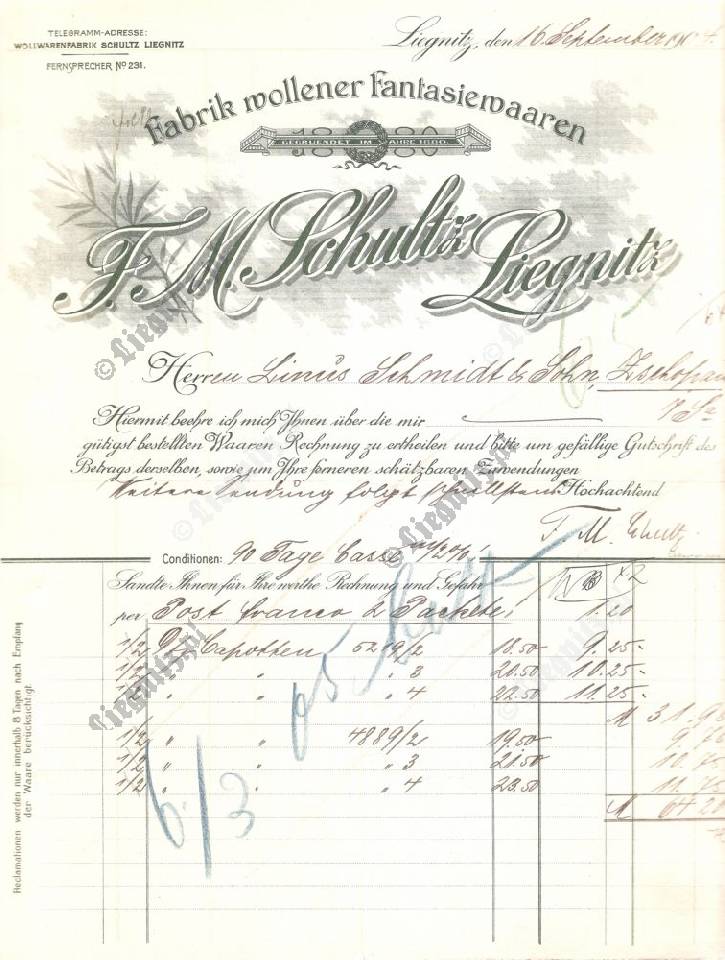 TELEGRAMM-ADRESSE:
WOLLWARENFABRIK SCHULTZ LIEGNITZ
FERNSPRECHER No 231.
Liegnitz, den 16. September 1904.
Fabrik wollener Fantasiewaaren
1880
GEGRUENDET IM JAHRE 1880.
F. M. Schultz Liegnitz
Herren Linus Schmidt & Sohn, Zschopau
i/Sa
Hiermit beehre ich mich Ihnen über die mir
gütigst bestellten Waaren Rechnung zu ertheilen und bitte um gefällige Gutschrift des
Betrags derselben, sowie um Ihre ferneren schätzbaren Zuwendungen
Weitere Sendung folgt schnellstens Hochachtend
F. M. Schultz
Conditionen: 90 Tage Casse
Sandte Ihnen für Ihre werthe Rechnung und Gefahr
per Post franco 2 Packete! 1.20
1/2 Capotten 5219/2 18.50 9.25
1/2 " " " 3 20.50 10.25
1/2 " " " 4 22.50 11.25
M 31.9
1/2 " " 4889/2 19.50 9.7
1/2 " " " 3 21.50 10.75
1/2 " " " 4 23.50 11.75
M 64.20
6/3
Reclamationen werden nur innerhalb 8 Tagen nach Empfang
der Waare berücksichtigt.
© Liegnitz.pl
© Liegnitz.pl
© Liegnitz.pl
Liegnitz.pl